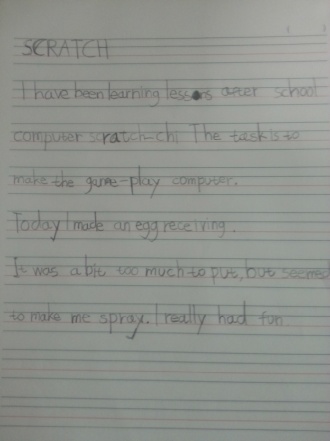 SCRATCH
I have been learning lessons after school
computer scratch-chi The task is to
make the game-play computer.
Today I made an egg receiving.
It was a bit too much to put, but seemed
to make me spray. I really had fun